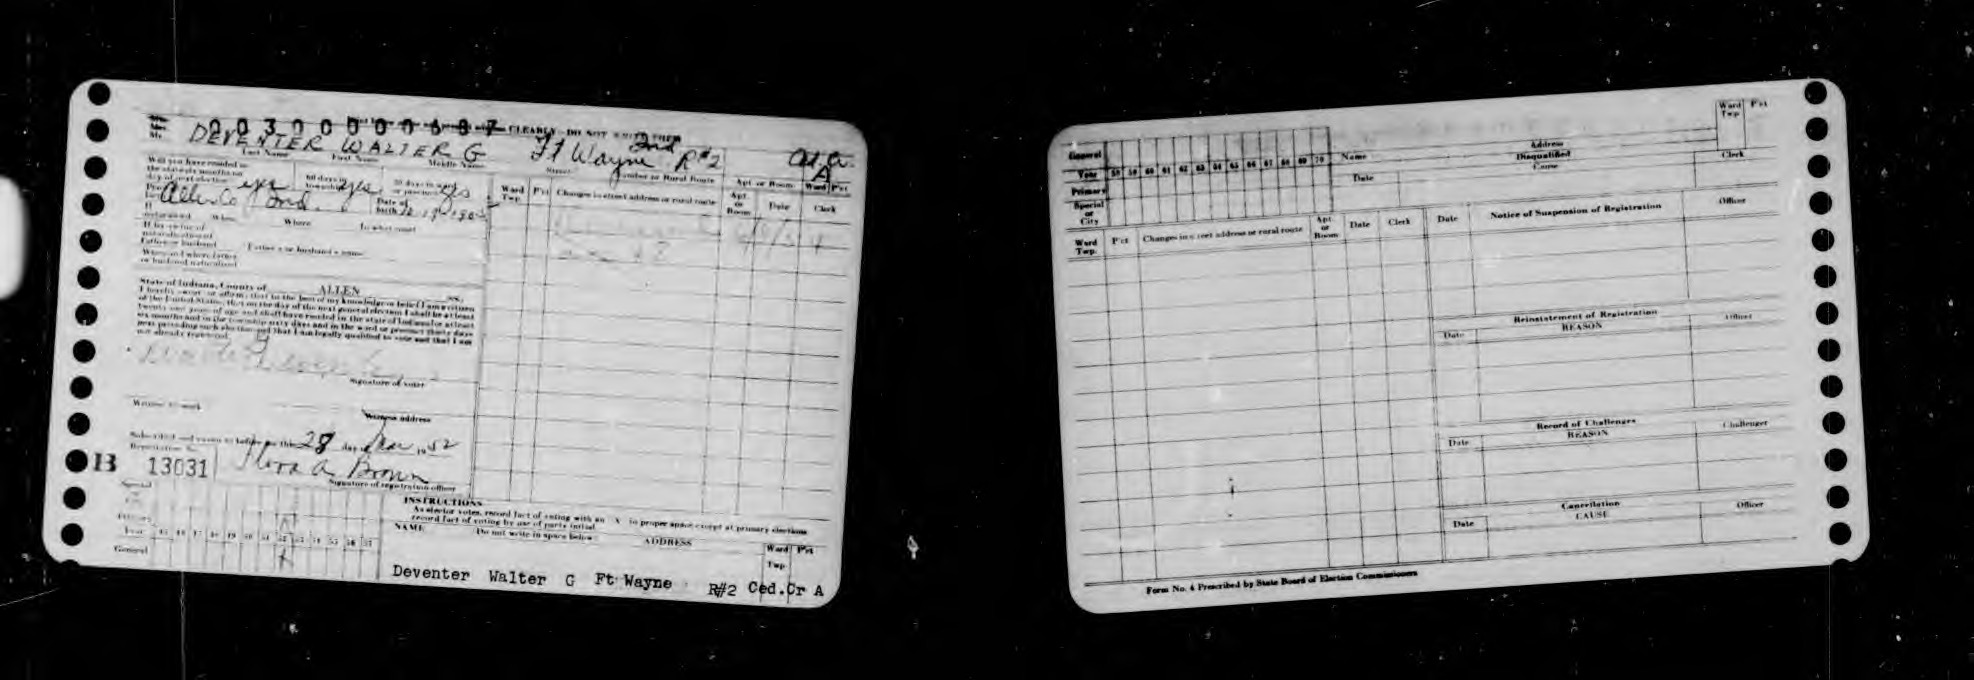 Mr.
0030000687 CLEARLY DO NOT
DEVENTER WALTER G Ft Wayne Ind R#2
Last Name First Name Middle Name Street Number or Rural Route Apt or Room Ward Pct
Will you have resided in
the state six months on
day of next election yes 60 days in township yes 30 days in precinct yes
Allen Co Ind. Date of birth
Ward Twp. P'ct Changes in street address or rural route Apt. or Room Date Clerk
If naturalized When Where In what court
If by virtue of
naturalization of
Father or husband Father's or husband's name
When and where father
or husband naturalized
State of Indiana, County of ALLEN SS.
I hereby swear or affirm, that to the best of my knowledge or belief I am a citizen
of the United States, that on the day of the next general election I shall be at least
twenty-one years of age and shall have resided in the state of Indiana for at least
six months and in the township sixty days and in the ward or precinct thirty days
next preceding such election and that I am legally qualified to vote and that I am
not already registered.
Signature of voter
Witness to mark Witness address
Subscribed and sworn to before me this 28 day of Mar 1952
Registration No.
B 13031 Flora A Brown
Signature of registration officer
INSTRUCTIONS
As elector votes, record fact of voting with an X in proper space except at primary elections
record fact of voting by use of party initial.
NAME Do not write in space below ADDRESS Ward Twp P'ct
Primary
Year 45 46 47 48 49 50 51 52 53 54 55 56 57
General X
Deventer Walter G Ft Wayne R#2 Ced.Cr A
General
Year 58 59 60 61 62 63 64 65 66 67 68 69 70
Primary
Special or City
Name Address Ward Twp P'ct
Date Disqualified Cause Clerk
Ward Twp. P'ct Changes in street address or rural route Apt. or Room Date Clerk
Date Notice of Suspension of Registration Officer
Reinstatement of Registration
Date REASON Officer
Record of Challenges
Date REASON Challenger
Cancellation
Date CAUSE Officer
Form No. 4 Prescribed by State Board of Election Commissioners